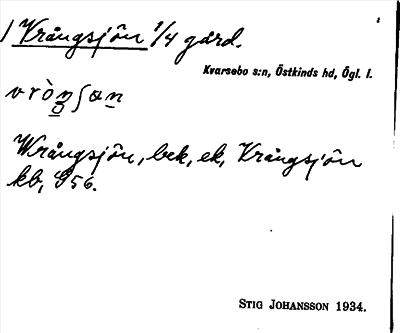 / Vrångsjön 1/4 gård.
Kvarsebo s:n, Östkinds hd, Ögl. l.
Wrångsjön, bek, ek, Vrångsjön
kb, G56.
STIG JOHANSSON 1934.